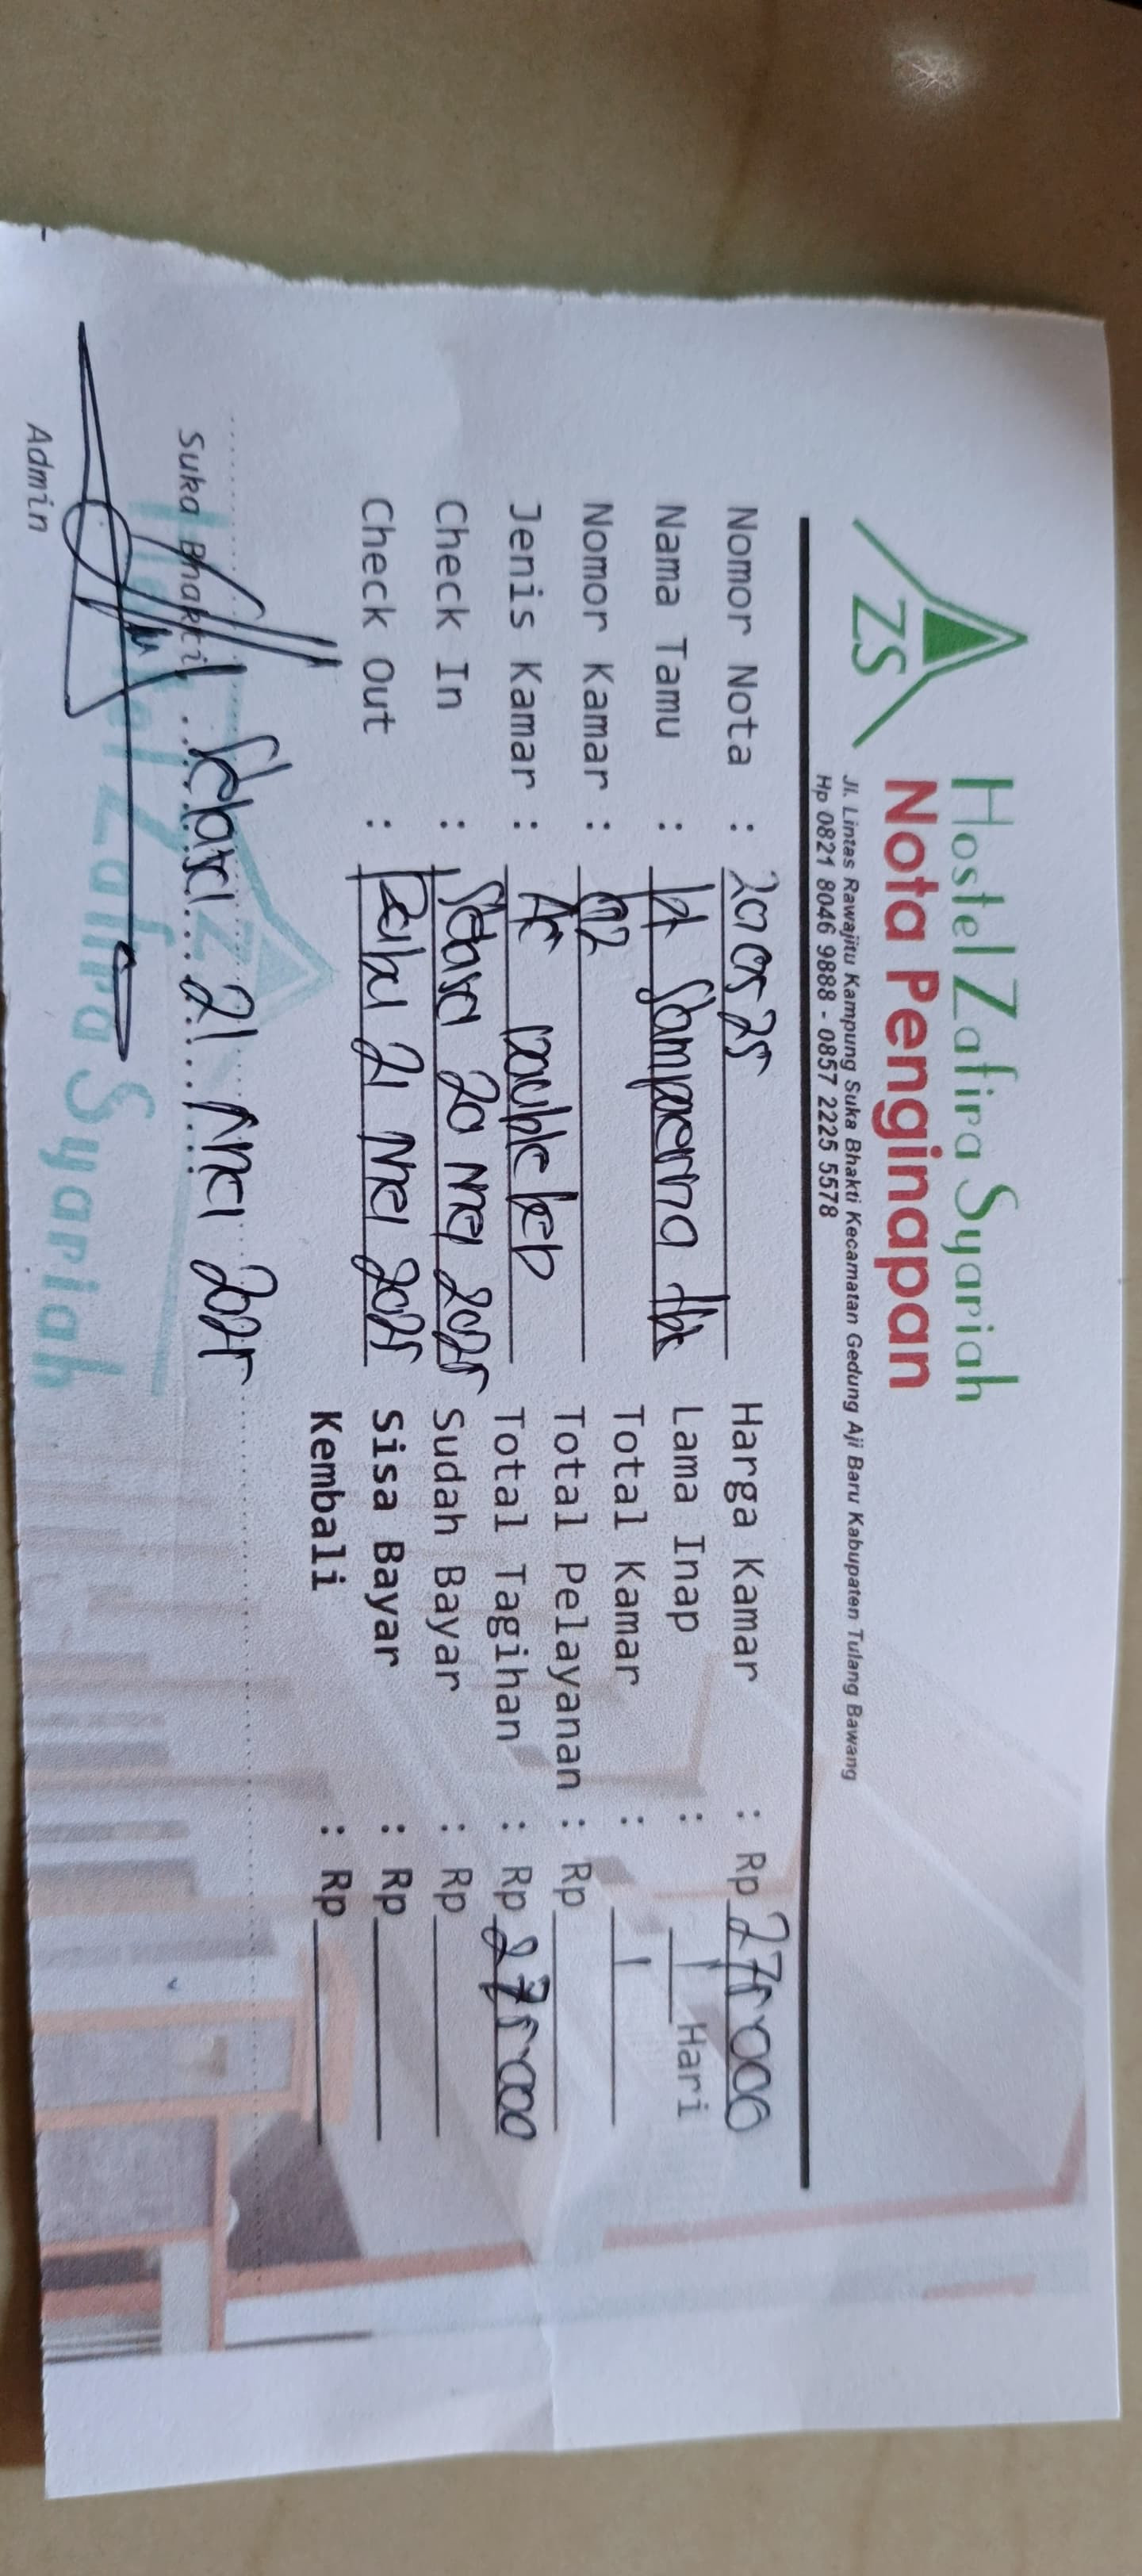 ZS
Hostel Zafira Syariah
Nota Penginapan
Jl. Lintas Rawajitu Kampung Suka Bhakti Kecamatan Gedung Aji Baru Kabupaten Tulang Bawang
Hp 0821 8046 9888 - 0857 2225 5578
Nomor Nota : 200525
Nama Tamu : Pt Sampoerna tbk
Nomor Kamar : 02
Jenis Kamar : AC Double bed
Check In : Selasa 20 Mei 2025
Check Out : Rabu 21 Mei 2025
Harga Kamar : Rp 275000
Lama Inap : 1 Hari
Total Kamar : 1
Total Pelayanan : Rp
Total Tagihan : Rp 275000
Sudah Bayar : Rp
Sisa Bayar : Rp
Kembali : Rp
Suka Bhakti, Selasa 21 Mei 2025
Admin
Hostel Zafira Syariah